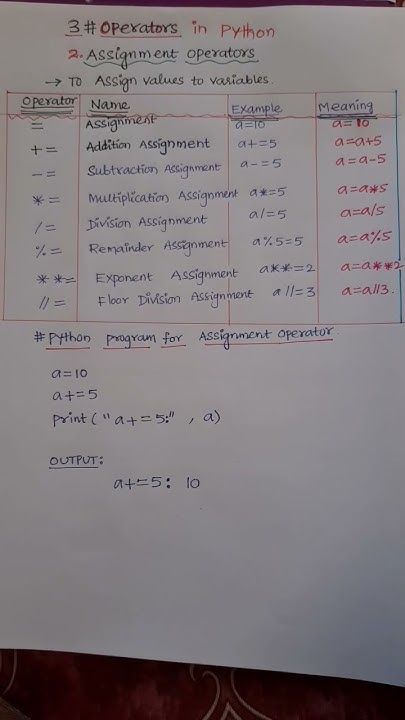 3# Operators in Python
2. Assignment operators
→ To Assign values to variables.
Operator Name Example Meaning
= Assignment a=10 a=10
+= Addition Assignment a+=5 a=a+5
-= Subtraction Assignment a-=5 a=a-5
*= Multiplication Assignment a*=5 a=a*5
/= Division Assignment a/=5 a=a/5
%= Remainder Assignment a%=5 a=a%5
**= Exponent Assignment a**=2 a=a**2
//= Floor Division Assignment a//=3 a=a//3.
#Python program for Assignment operator.
a=10
a+=5
print("a+=5:", a)
OUTPUT:
a+=5: 10